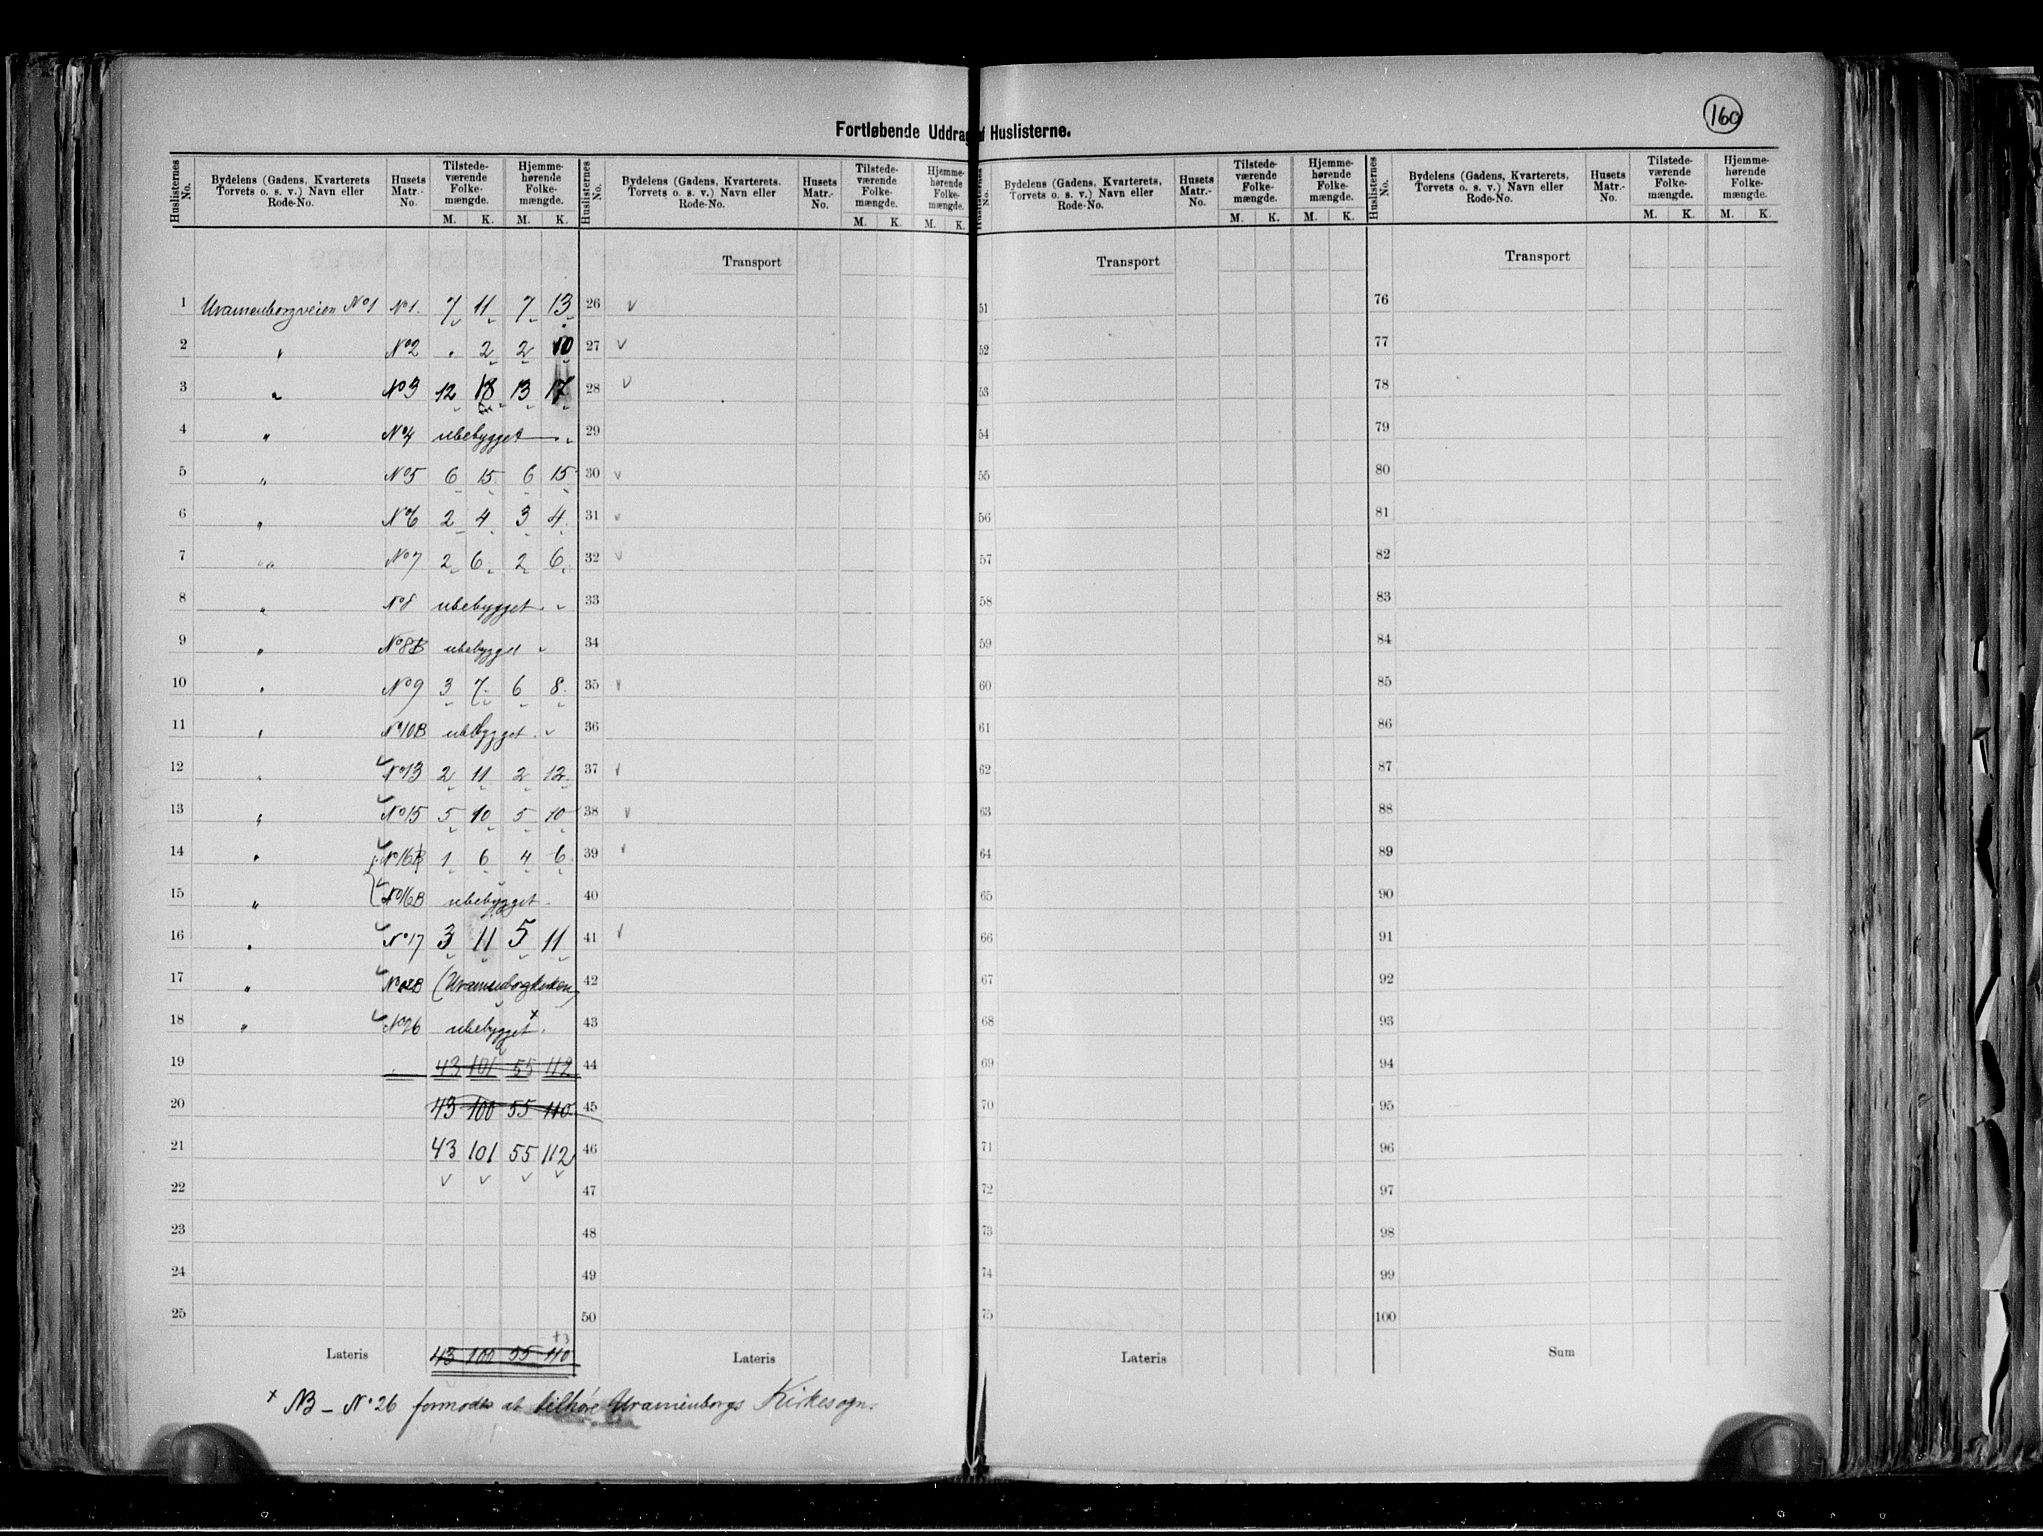 160
Fortløbende Uddrag af Huslisterne.
Huslisternes No. | Bydelens (Gadens, Kvarterets Torvets o. s. v.) Navn eller Rode-No. | Husets Matr.-No. | Tilstede-værende Folke-mængde. M. K. | Hjemme-hørende Folke-mængde. M. K. | Huslisternes No. | Bydelens (Gadens, Kvarterets, Torvets o. s. v.) Navn eller Rode-No. | Husets Matr.-No. | Tilstede-værende Folke-mængde. M. K. | Hjemme-hørende Folke-mængde. M. K. | Huslisternes No. | Bydelens (Gadens, Kvarterets, Torvets o. s. v.) Navn eller Rode-No. | Husets Matr.-No. | Tilstede-værende Folke-mængde. M. K. | Hjemme-hørende Folke-mængde. M. K. | Huslisternes No. | Bydelens (Gadens, Kvarterets Torvets o. s. v.) Navn eller Rode-No. | Husets Matr.-No. | Tilstede-værende Folke-mængde. M. K. | Hjemme-hørende Folke-mængde. M. K.
Transport Transport Transport
1 Uranienborgveien No 1 No 1. 7 11 7 13 26 v 51 76
2 " No 2 . 2 2 10 27 v 52 77
3 " No 3 12 18 13 17 28 v 53 78
4 " No 4 ubebygget 29 54 79
5 " No 5 6 15 6 15 30 v 55 80
6 " No 6 2 4 3 4 31 v 56 81
7 " No 7 2 6 2 6 32 v 57 82
8 " No 8 ubebygget 33 58 83
9 " No 8B ubebygget 34 59 84
10 " No 9 3 7 6 8 35 v 60 85
11 " No 10B ubebygget 36 61 86
12 " No 13 2 11 2 12 37 v 62 87
13 " No 15 5 10 5 10 38 v 63 88
14 " No 16 1 6 4 6 39 v 64 89
15 " No 16B ubebygget 40 65 90
16 " No 17 3 11 5 11 41 v 66 91
17 " (Uranienborgkirken) 42 67 92
18 " No 26 ubebygget x 43 68 93
19 43 101 55 112 44 69 94
20 43 100 55 110 45 70 95
21 43 101 55 112 46 71 96
22 47 72 97
23 48 73 98
24 49 74 99
25 50 75 100
+3
Lateris 43 100 55 110 Lateris Lateris Sum
x NB – No 26 formodes at tilhøre Uranienborgs Kirkesogn.